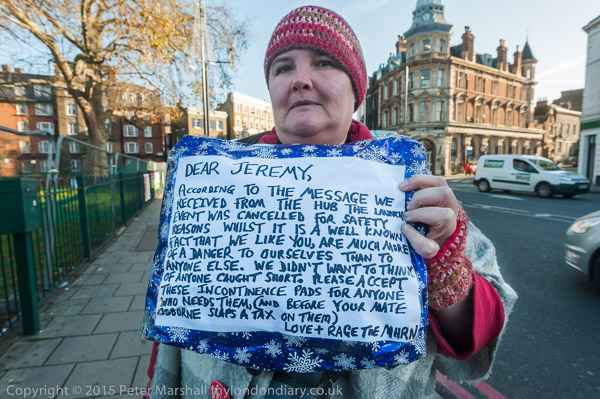 DEAR JEREMY,
ACCORDING TO THE MESSAGE WE
RECEIVED FROM THE HUB THE LAUNCH
EVENT WAS CANCELLED FOR SAFETY
REASONS WHILST IT IS A WELL KNOWN
FACT THAT WE LIKE YOU, ARE MUCH MORE
OF A DANGER TO OURSELVES THAN TO
ANYONE ELSE. WE DIDN'T WANT TO THINK
OF ANYONE CAUGHT SHORT. PLEASE ACCEPT
THESE INCONTINENCE PADS FOR ANYONE
WHO NEEDS THEM, (AND BEFORE YOUR MATE
OSBORNE SLAPS A TAX ON THEM)
LOVE + RAGE THE MHRN
Copyright © 2015 Peter Marshall mylondondiary.co.uk